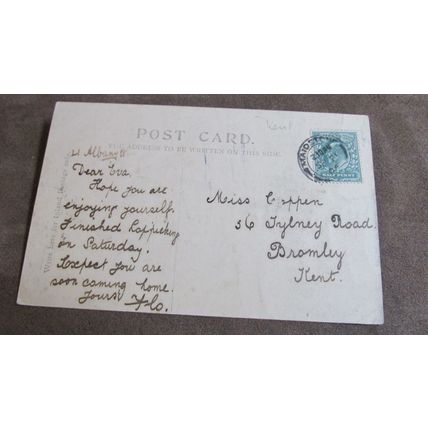 Kent
POST CARD.
THE ADDRESS TO BE WRITTEN ON THIS SIDE.
HALF PENNY
21 Albany St
Dear Eva.
Hope you are
enjoying yourself.
Finished hoppicking
on Saturday.
Expect you are
soon coming home.
Yours Flo.
Miss Coppen
56 Tylney Road
Bromley
Kent.